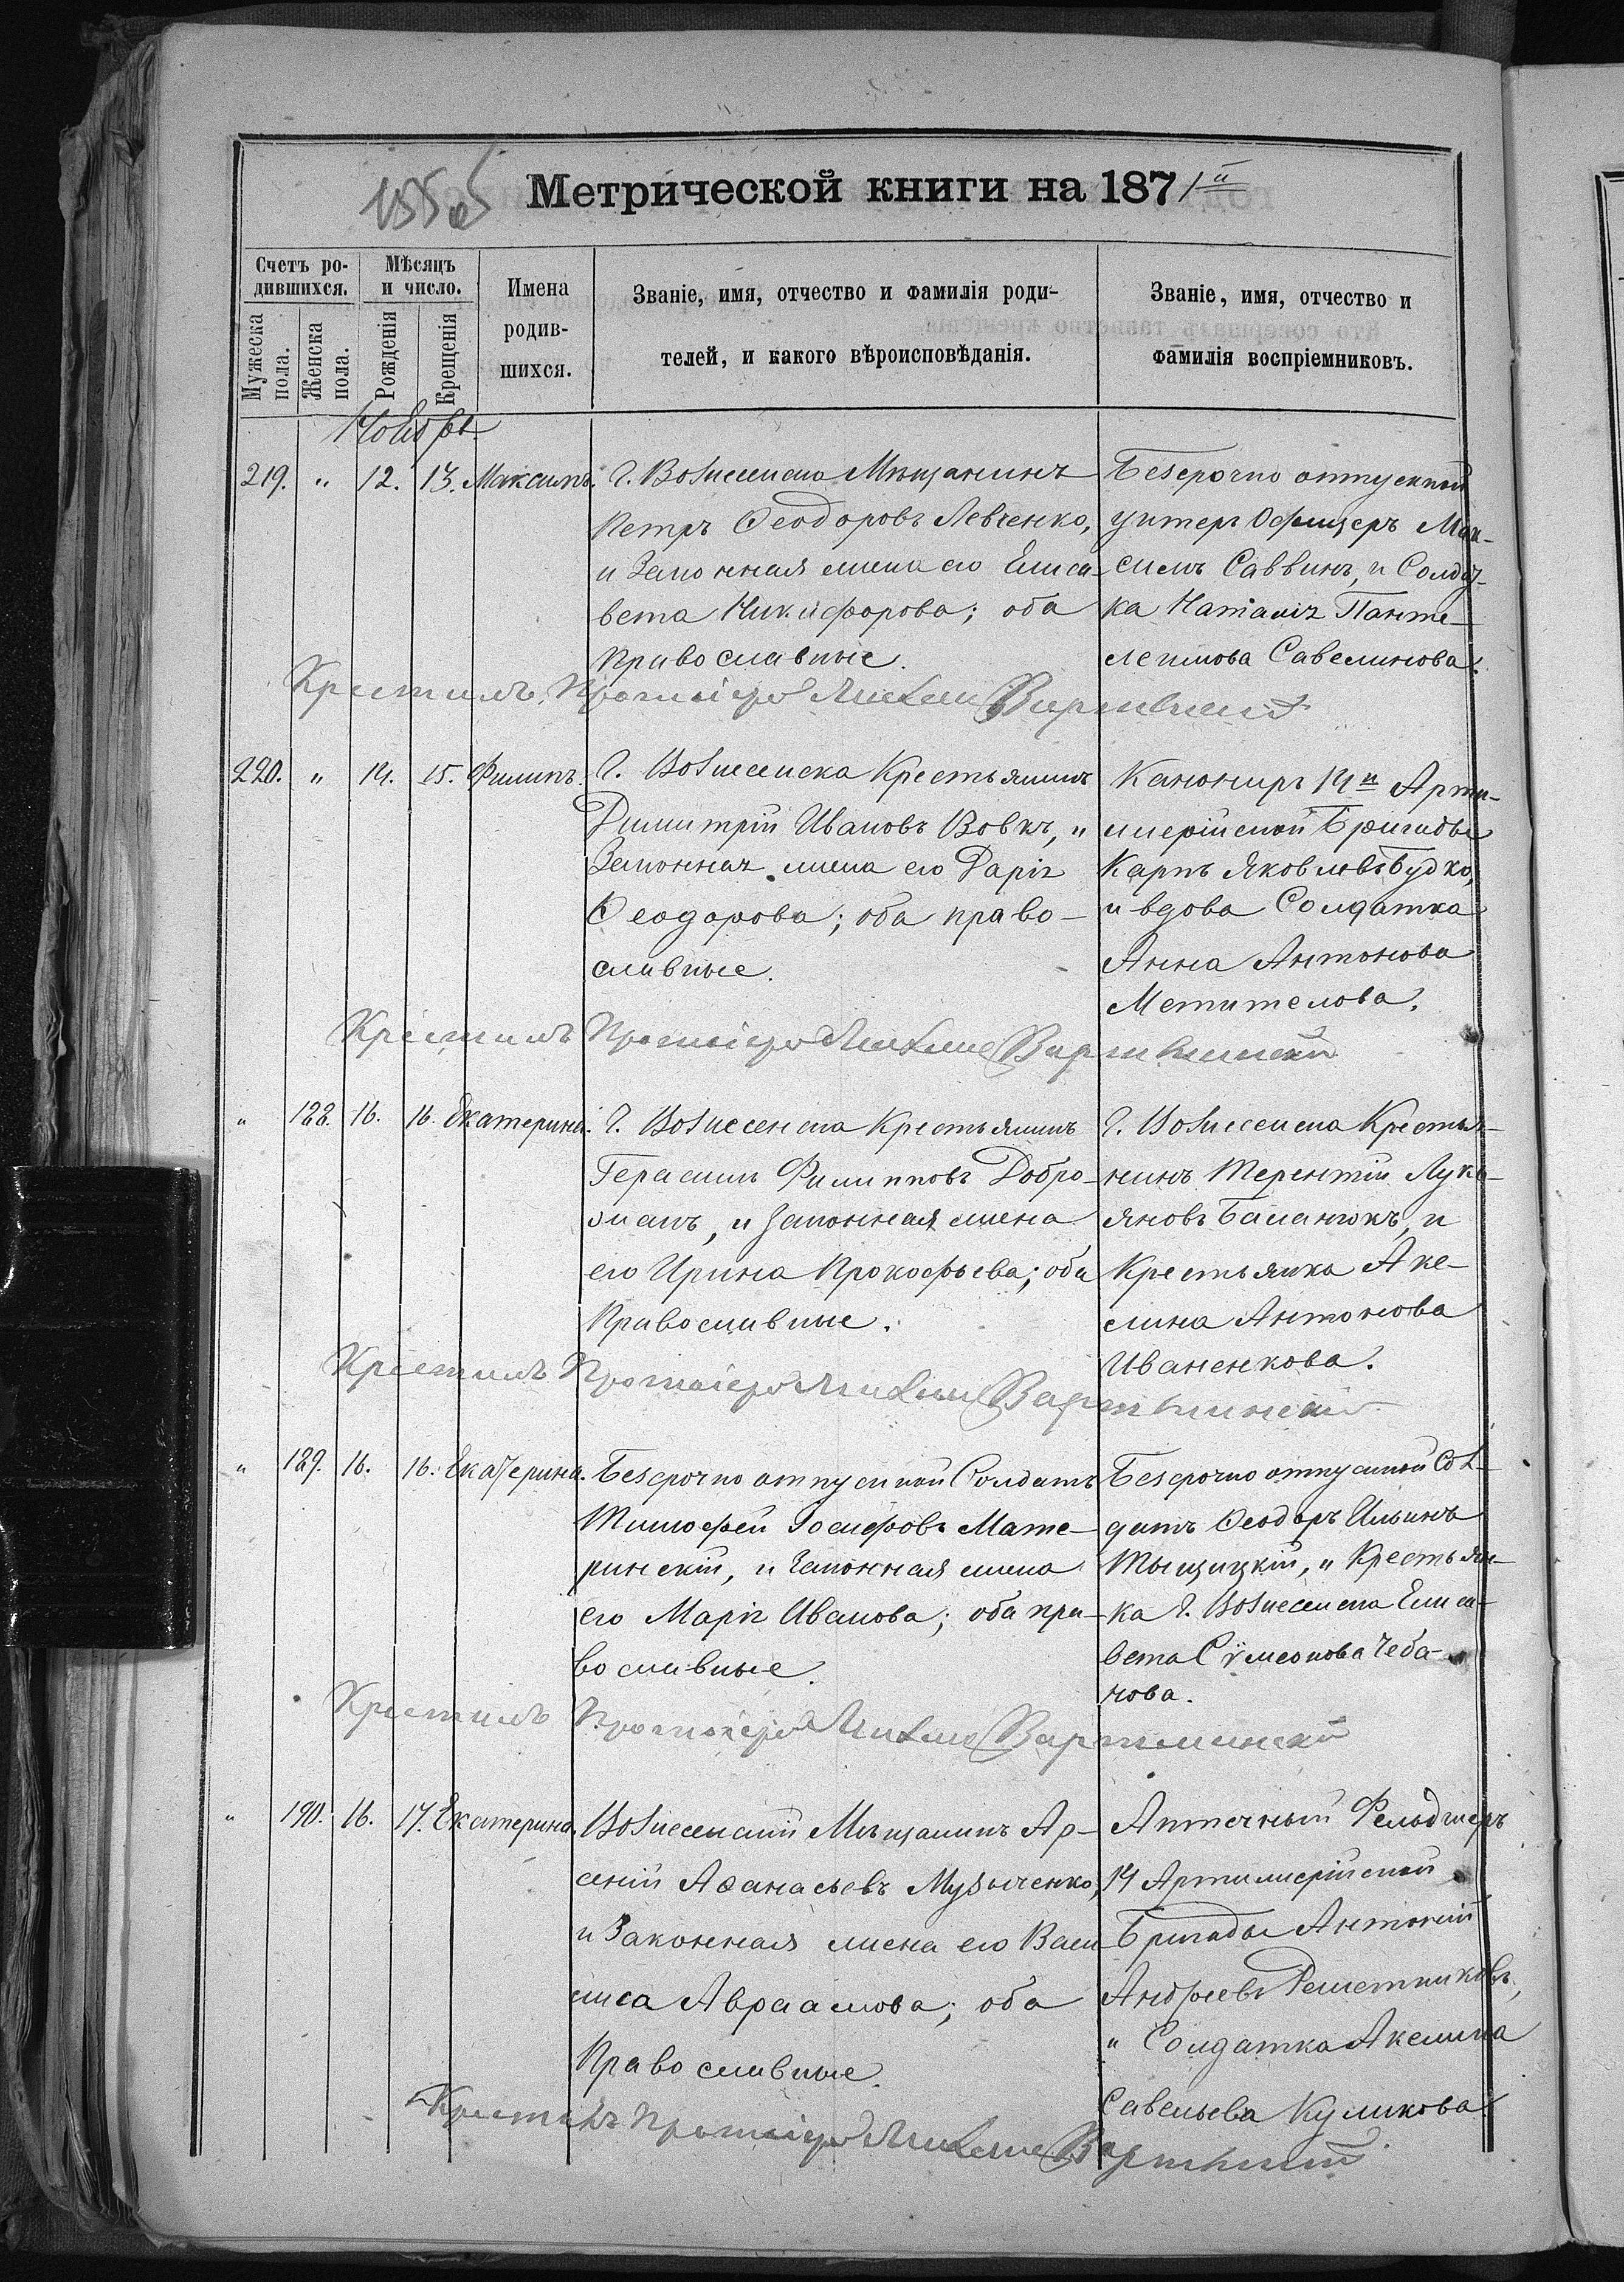 Метрической книги на 1871й
Счетъ ро-
дившихся.
Мѣсяцъ
и число.
Имена
родив-
шихся.
Званіе, имя, отчество и фамилія роди-
телей, и какого вѣроисповѣданія.
Званіе, имя, отчество и
фамилія воспріемниковъ.
Мужеска
пола.
Женска
пола.
Рожденія
Крещенія
Ноябрь
219. " 12. 13. Максимъ.
Г. Вознесенска Мѣщанинъ
Петръ Ѳеодоровъ Левченко,
и Законная жена его Елиса-
вета Никифорова; оба
Православные.
Безсрочно отпускной
унтеръ Офицеръ Мак-
симъ Саввинъ, и Солдат-
ка Наталія Панте-
леимова Савелинова.
Крестилъ Протоіерей Михаилъ
220. " 14. 15. Филипъ.
Г. Вознесенска Крестьянинъ
Димитрій Ивановъ Вовкъ, и
Законная жена его Дарія
Ѳеодорова; оба право-
славные.
Канониръ 14й Арти-
лерійской Бригады
Карпъ Яковлевъ Будко,
и вдова Солдатка
Анна Антонова
Метителова.
Крестилъ Протоіерей Михаилъ
" 188. 16. 16. Екатерина.
Г. Вознесенска Крестьянинъ
Герасимъ Филипповъ Добро-
жанъ, и Законная жена
его Ирина Прокофьева; оба
Православные.
Г. Вознесенска Крестья-
нинъ Терентій Лукь-
яновъ Баланюкъ, и
Крестьянка Аке-
лина Антонова
Иваненкова.
Крестилъ Протоіерей Михаилъ
" 189. 16. 16. Екатерина.
Безсрочно отпускной Солдатъ
Тимофей Іосифовъ Мате-
ринскій, и Законная жена
его Марія Иванова; оба пра-
вославные.
Безсрочно отпускной Сол-
датъ Ѳеодоръ Ильинъ
Тыщицкій, и Крестьян-
ка Г. Вознесенска Елиса-
вета Сѵмеонова Чеба-
нова.
Крестилъ Протоіерей Михаилъ
" 190. 16. 17. Екатерина.
Вознесенскій Мѣщанинъ Ар-
сеній Аѳанасьевъ Музыченко,
и Законная жена его Васи-
лиса Авраамова; оба
Православные.
Аптечный Фельдшеръ
14 Артилерійской
Бригады Антоній
Андреевъ Решетниковъ,
и Солдатка Акелина
Савельева Куликова.
Крестилъ Протоіерей Михаилъ